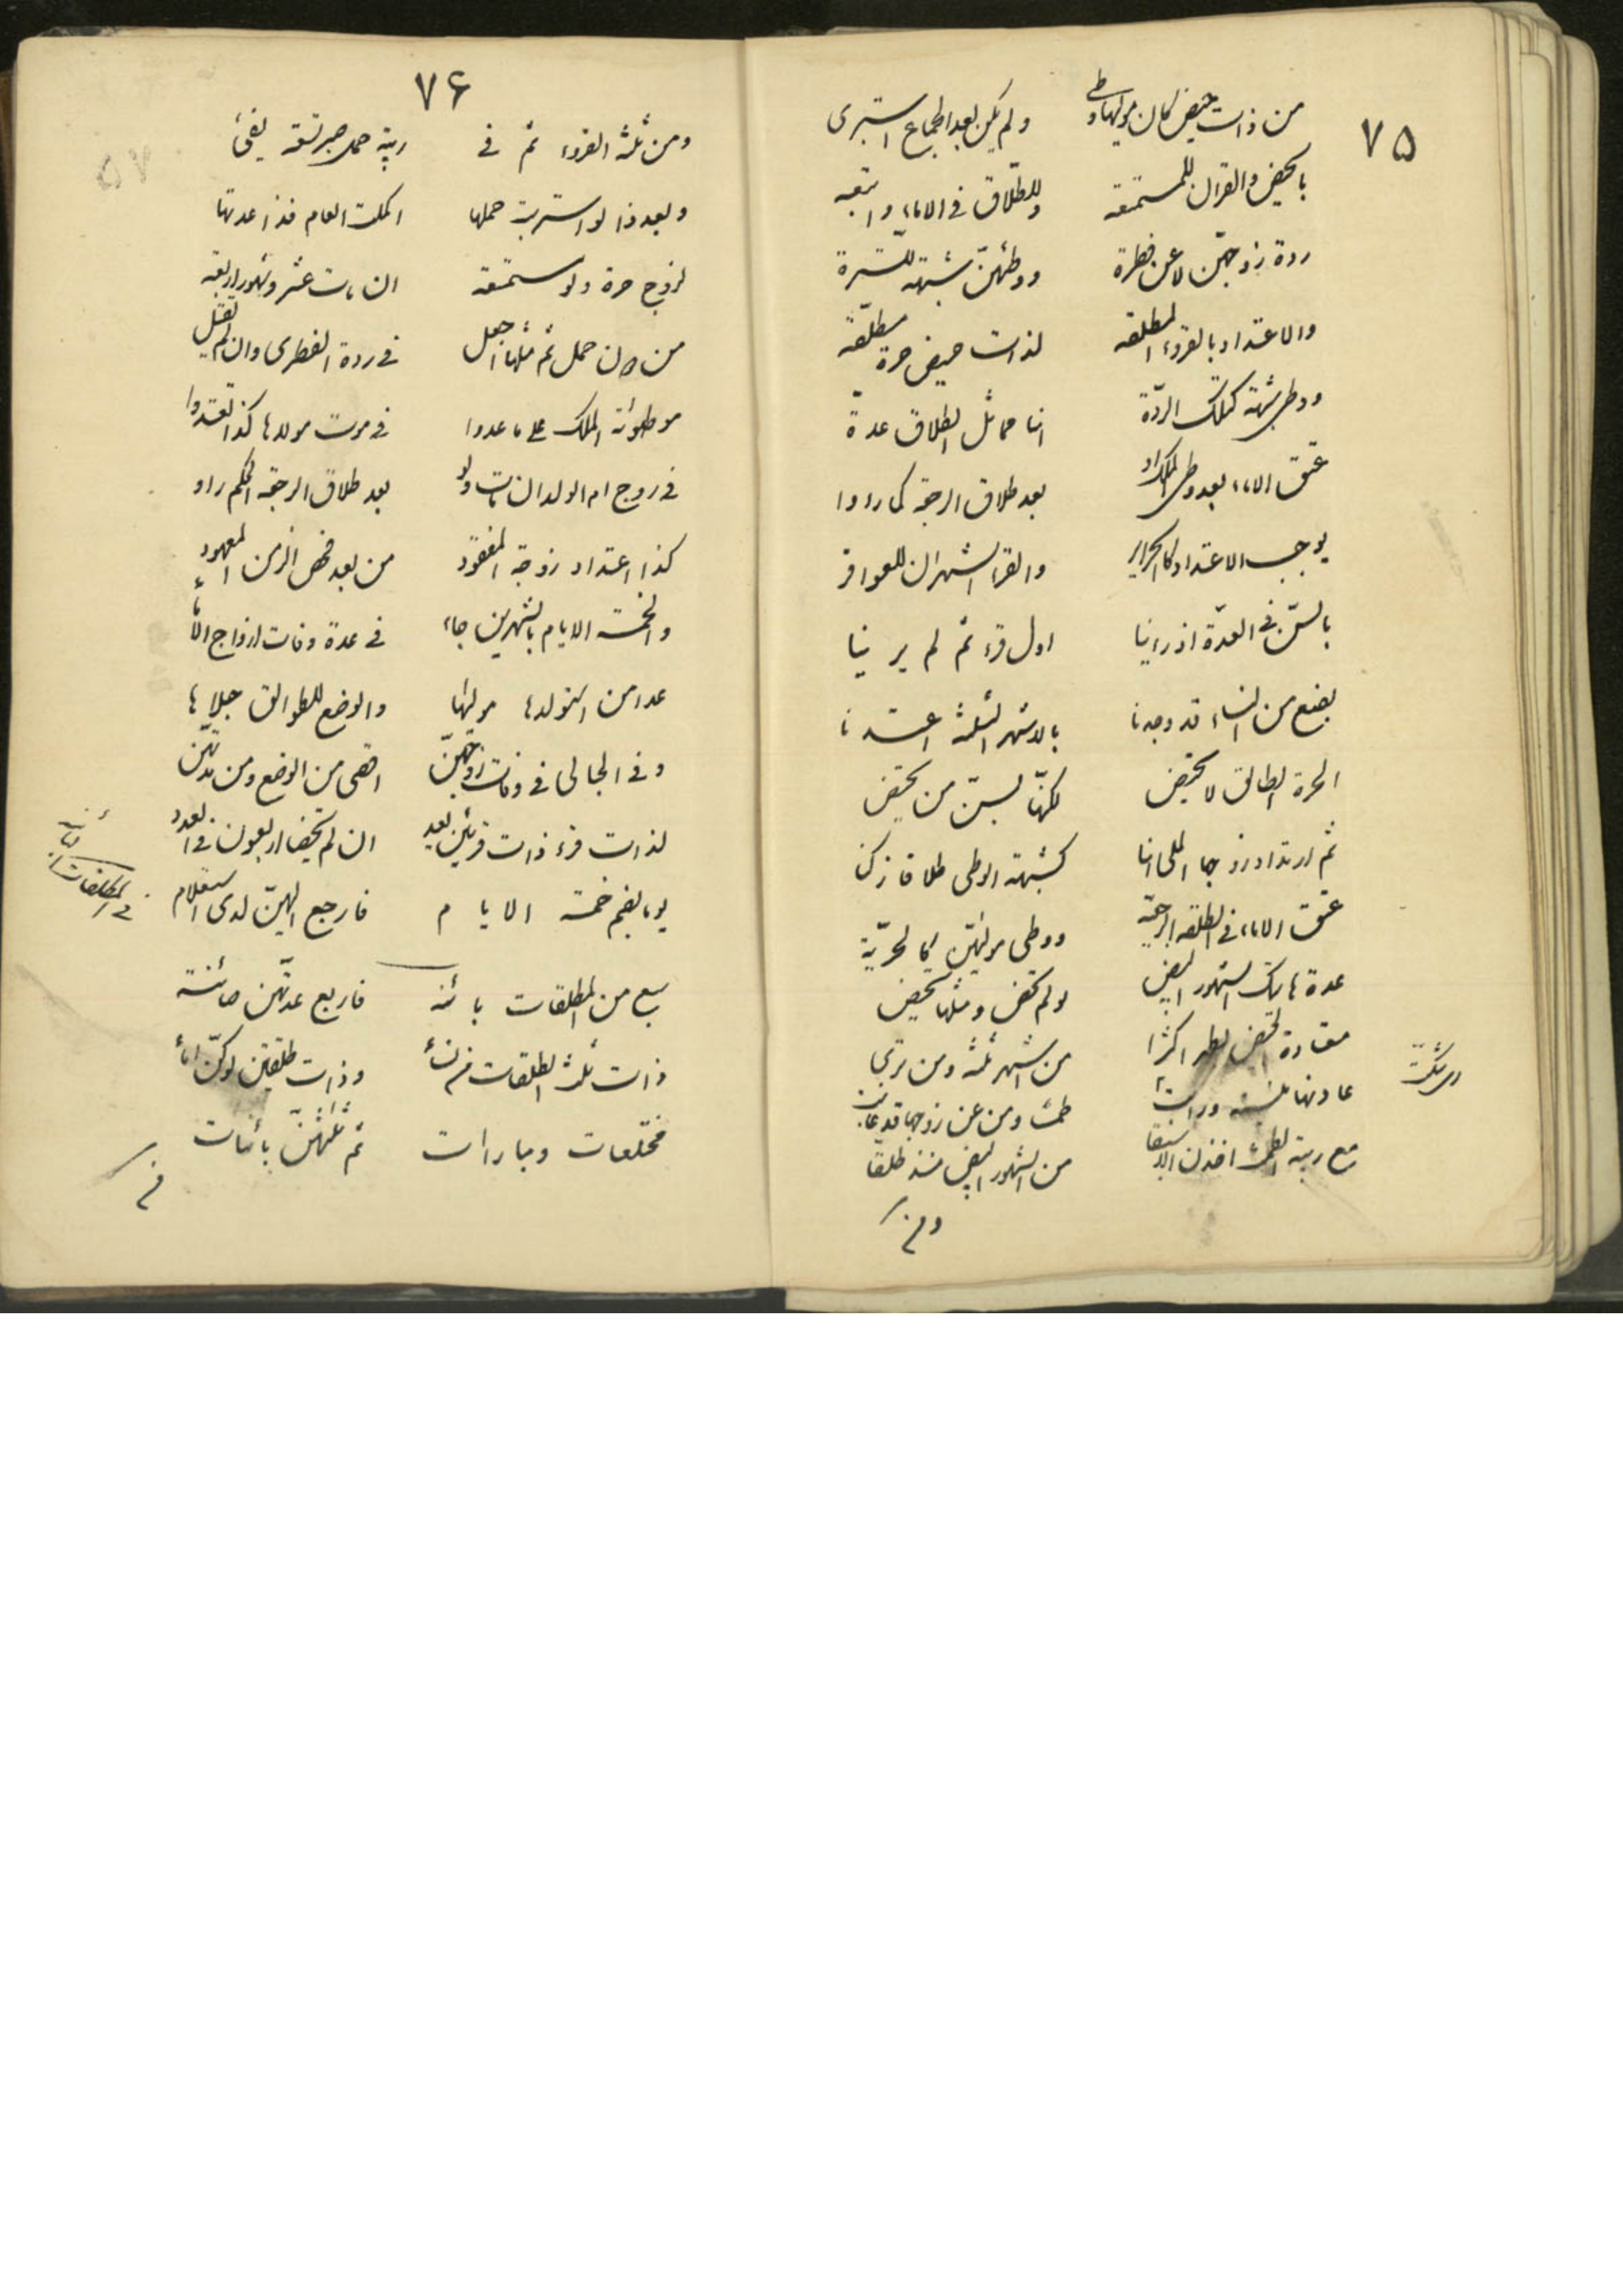 ٧۵
من ذات حيض كان موليها وطى ولم يكن بعد الجماع استبرى
بالحيض والقرآن للمستمتعه وللطلاق في الاماء واتبعه
ردة زوجهن لا عن فطرة ووطئهن شبهة للسترة
والاعتداد بالقروء المطلقه لذات حيض حرة مطلقه
ووطى شبهة كتلك الردة انا مماثل الطلاق عدة
عتق الاماء بعد وطى الملك او بعد طلاق الرجعة كما رووا
يوجب الاعتداد كالحراير والقرء الشهران للعواقر
بالسن في العدة اذ راينا اول قرء ثم لم يرينا
بضع من النساء قد وجدنا بالاشهر الثلثة اعتددنا
الحرة الطالق لا تحيض لكنها بسن من تحيض
ثم ارتداد زوجها الملى انا كشبهة الوطى طلاقا زكن
عتق الاماء في الطلقة الرجعية ووطى موليهن كالحرية
عدة هاتيك الشهور البيض لو لم تحض ومثلها تحيض
معتادة الحيض لطهر اكثرا من اشهر ثلثة ومن ترى
عادتها ورات طمثا ومن عن زوجها قد غابت
مع ريبة الطمث اخذن الاسبقا من الشهور البيض منذ طلقا
ومن
٧۶
ومن ثلثة القروء ثم في ريبة حمل صبر تسعة يفئ
وبعد ذا لو استربت حملها اكملت العام فذا عدتها
لزوج حرة ولو مستمتعه ان مات عشر وشهور اربعه
من دون حمل ثم مثلها اجعل في ردة الفطرى وان لم يقتل
موطوئة الملك على ما عدوا في موت مولدها كذا تعتد
في زوج ام الولد ان مات ولو بعد طلاق الرجعة الحكم راو
كذا اعتداد زوجة المفقود من بعد فحص الزمن المعهود
والخمسة الايام بالشهرين جاء في عدة وفات ازواج الاماء
عدا من استولدها موليها والوضع للطوالق حبلاها
وفي الحبالى في وفات زوجهن اقصى من الوضع ومن مدتهن
لذات قرء ذات قرئين بعد ان لم تحيضا اربعون في العدد
يوما بضم خمسة الايام فارجع اليهن لدى استعلام
سبع من المطلقات بائنه فاربع عدتهن صائنة
ذات ثلث الطلقات من نساء وذات طلقتين لو كن اماء
مختلعات ومبارات ثم ثلثهن بائنات
في المطلقات